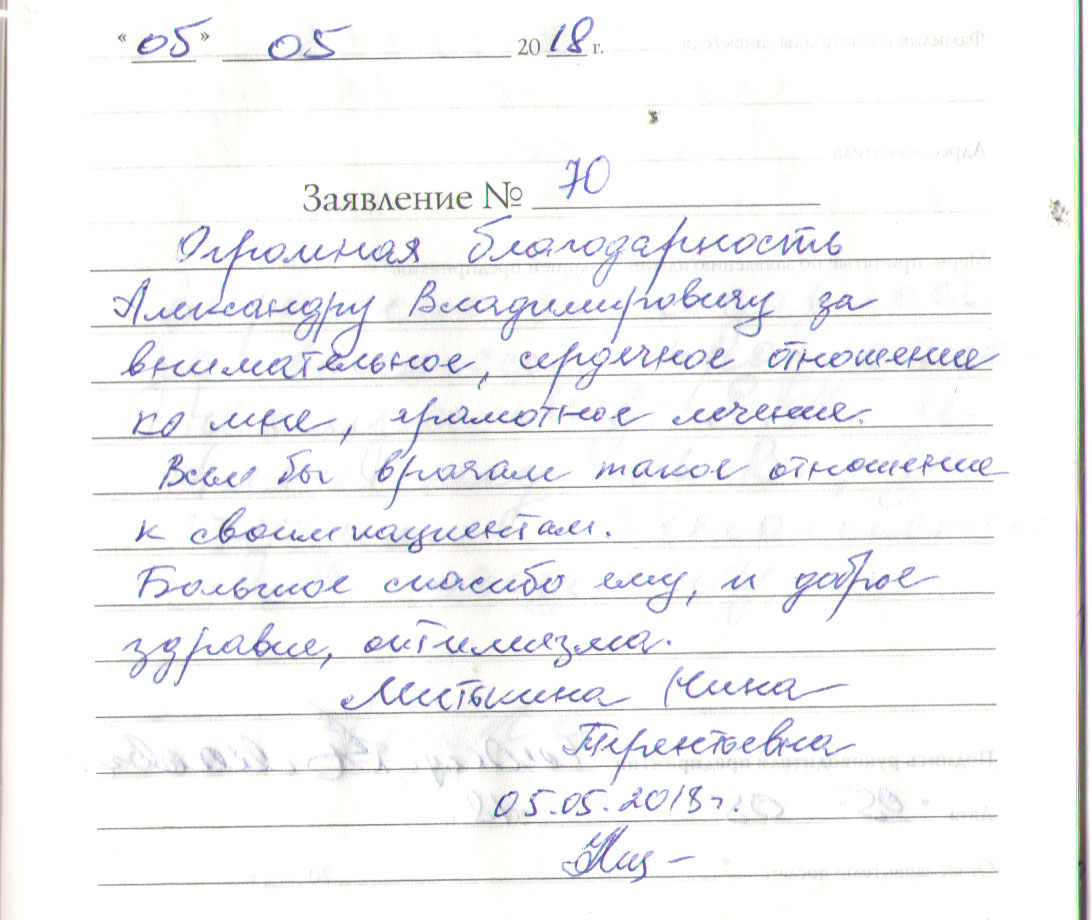 "05" 05 2018 г.
Заявление № 70
Огромная благодарность
Александру Владимировичу за
внимательное, сердечное отношение
ко мне, грамотное лечение.
Всем бы врачам такое отношение
к своим пациентам.
Большое спасибо ему, и доброе
здравие, оптимизма.
Нина
Терентьевна
05.05.2018 г.